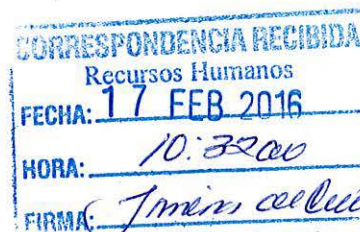 CORRESPONDENCIA RECIBIDA
Recursos Humanos
FECHA: 17 FEB 2016
HORA: 10:32
FIRMA: